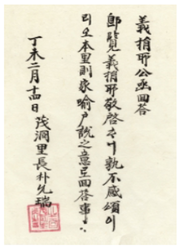 義捐所公函回答
郎覽義捐所敬啓ᄒᆞ니 孰不感頌이
리오 本里則家喻戶說之意로 回答事
丁未二月十四日 茂洞里長 朴允瑞